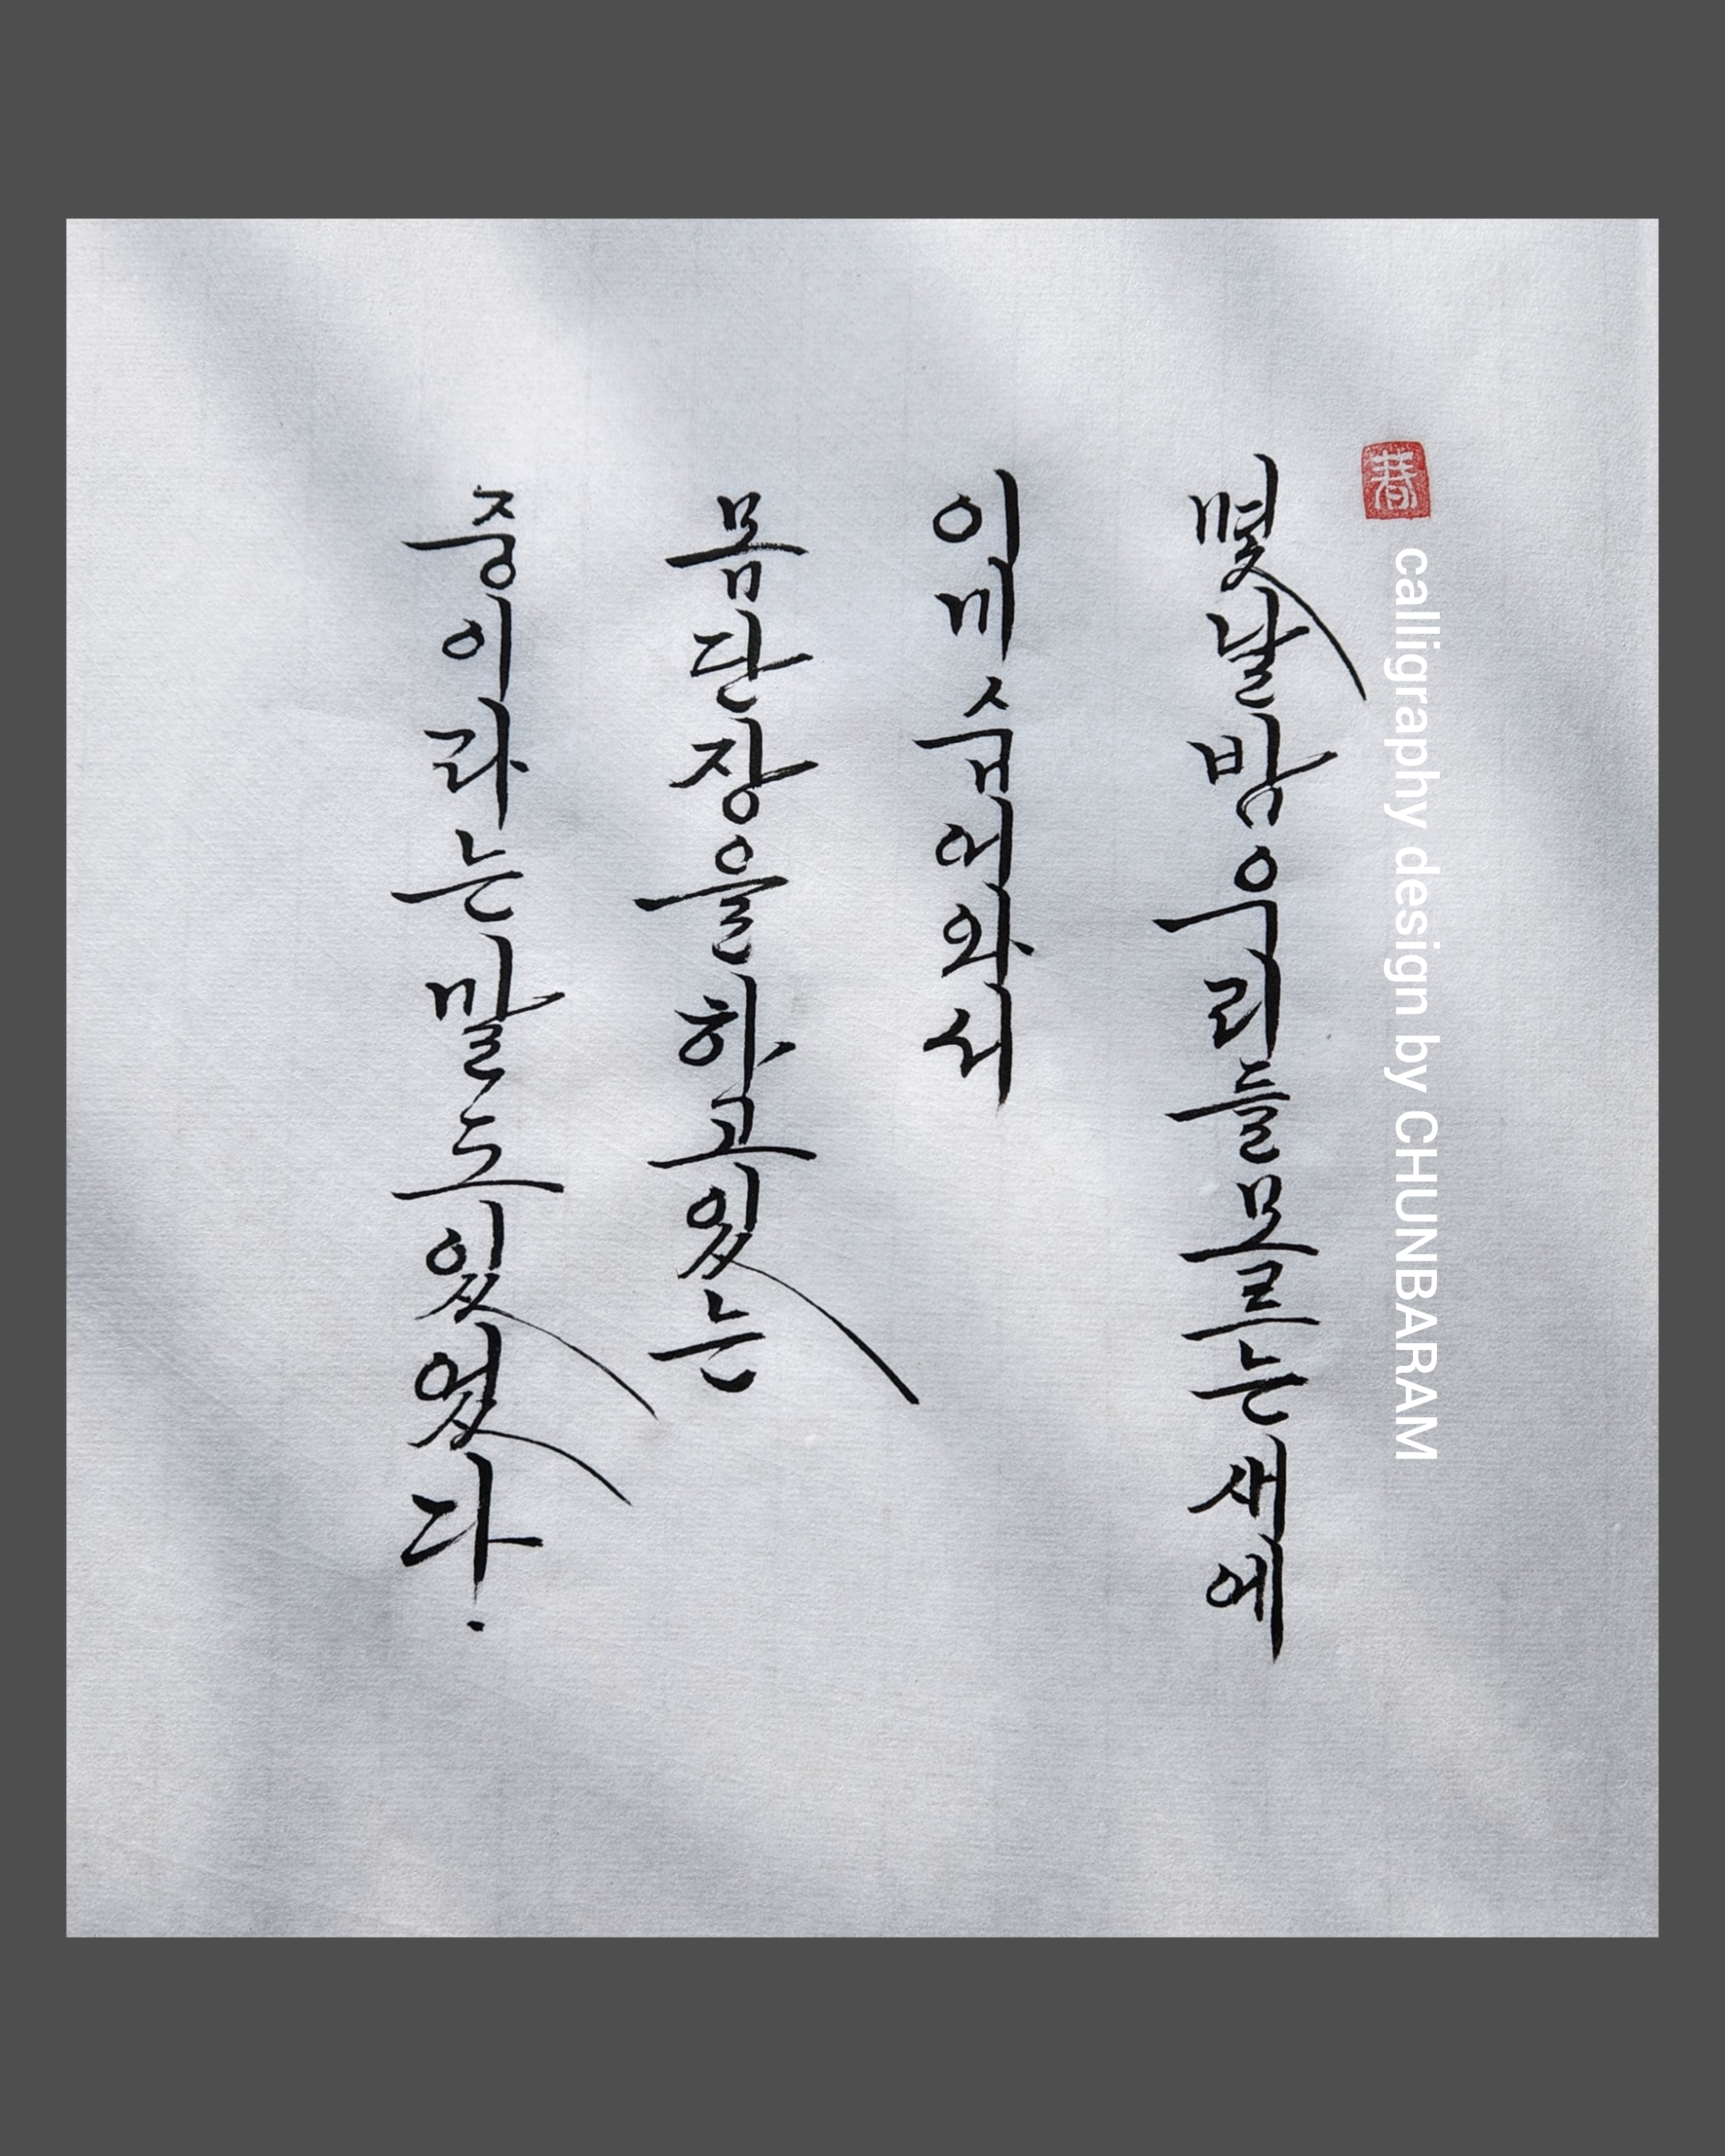 春
calligraphy design by CHUNBARAM
몇날밤우리들모르는새에
이미숨어와서
몸단장을하고있는
중이라는말도있었다.